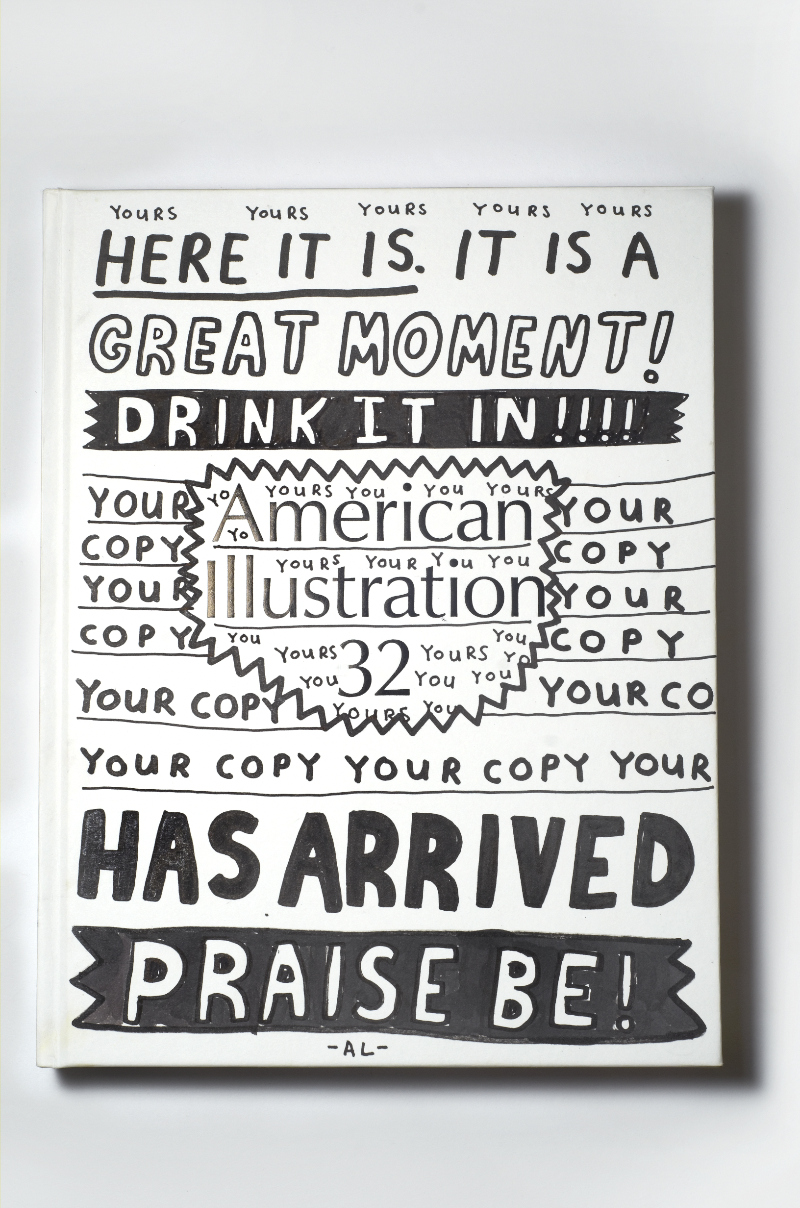 YOURS YOURS YOURS YOURS YOURS
HERE IT IS. IT IS A
GREAT MOMENT!
DRINK IT IN!!!!
YO YOURS YOU YOU YOURS
YOUR American YOUR
YO
COPY COPY
YOURS YOUR YOU YOU
YOUR Illustration YOUR
COPY YOU YOU COPY
YOURS 32 YOURS YO
YOU YOU YOU
YOUR COPY YOURS YOU YOUR CO
YOUR COPY YOUR COPY YOUR
HAS ARRIVED
PRAISE BE!
-AL-